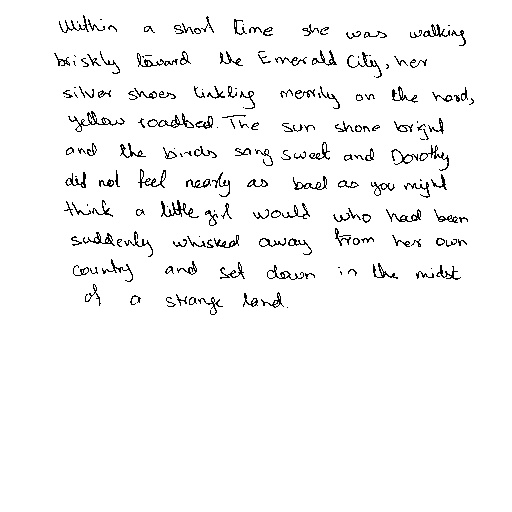 Within a short time she was walking
briskly toward the Emerald City, her
silver shoes tinkling merrily on the hard,
yellow roadbed. The sun shone bright
and the birds sang sweet and Dorothy
did not feel nearly as bad as you might
think a little girl would who had been
suddenly whisked away from her own
country and set down in the midst
of a strange land.